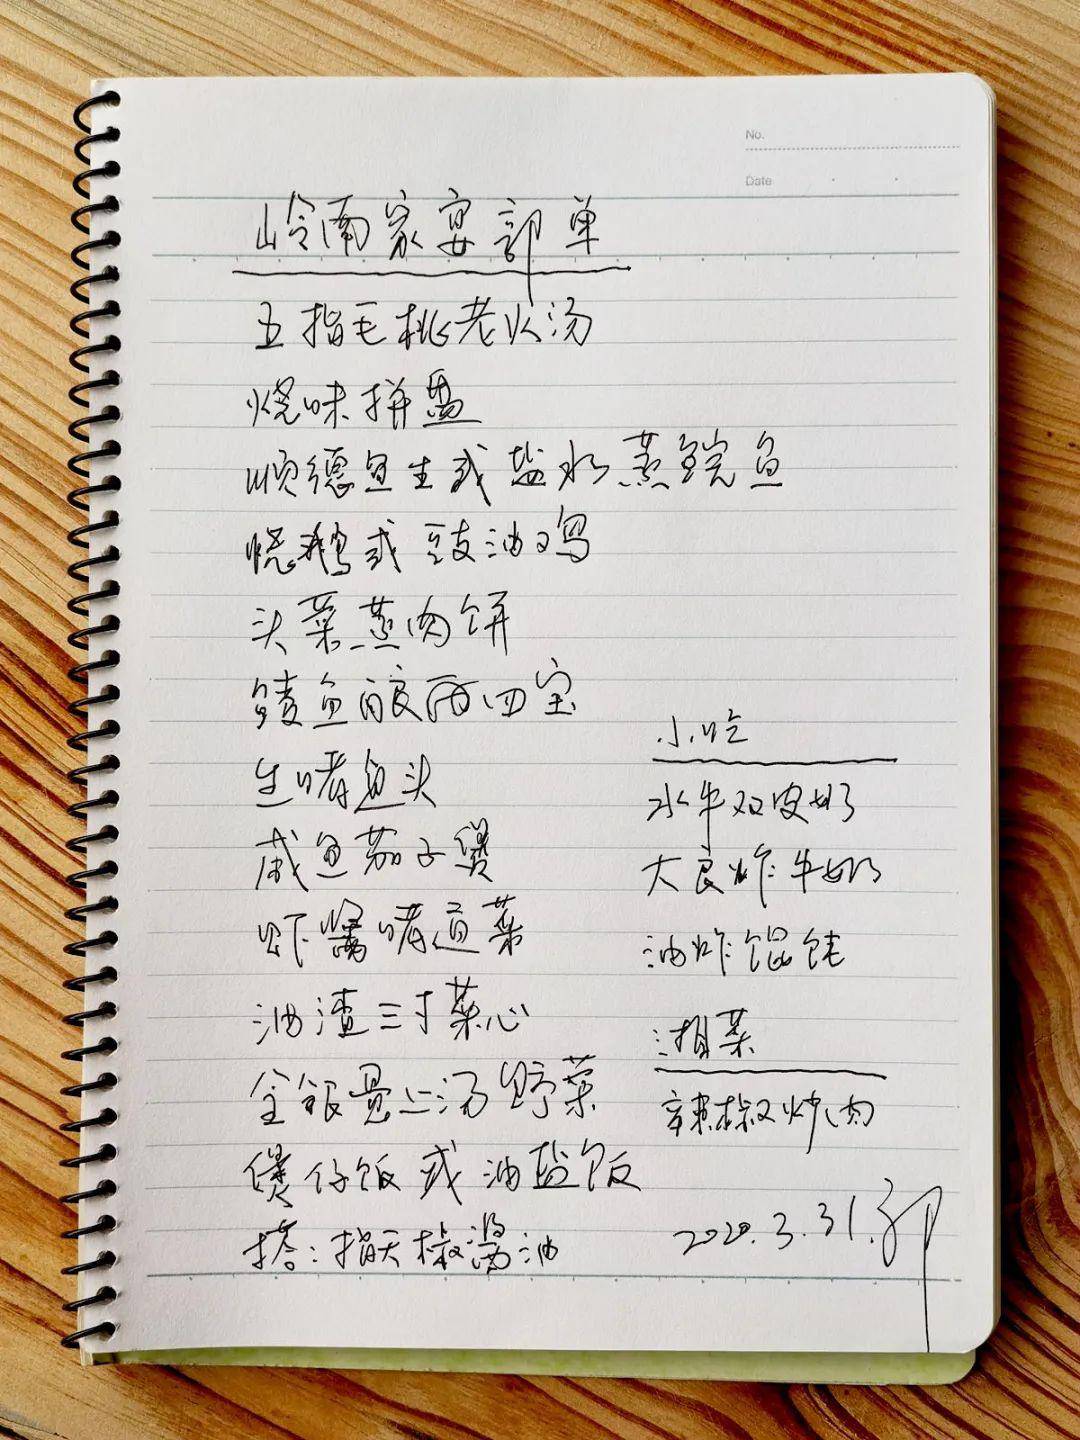 No.
Date
岭南家宴部单
五指毛桃老火汤
烧味拼盘
顺德鱼生或盐水蒸鲩鱼
烧鹅或豉油鸡
头菜蒸肉饼
鲮鱼酿西四宝
生啫鱼头
咸鱼茄子煲
虾酱啫通菜
油渣三寸菜心
金银蛋上汤野菜
煲仔饭或油盐饭
搭：指天椒酱油
小吃
水牛双皮奶
大良炸牛奶
油炸馄饨
湘菜
辣椒炒肉
2020.3.31.郭